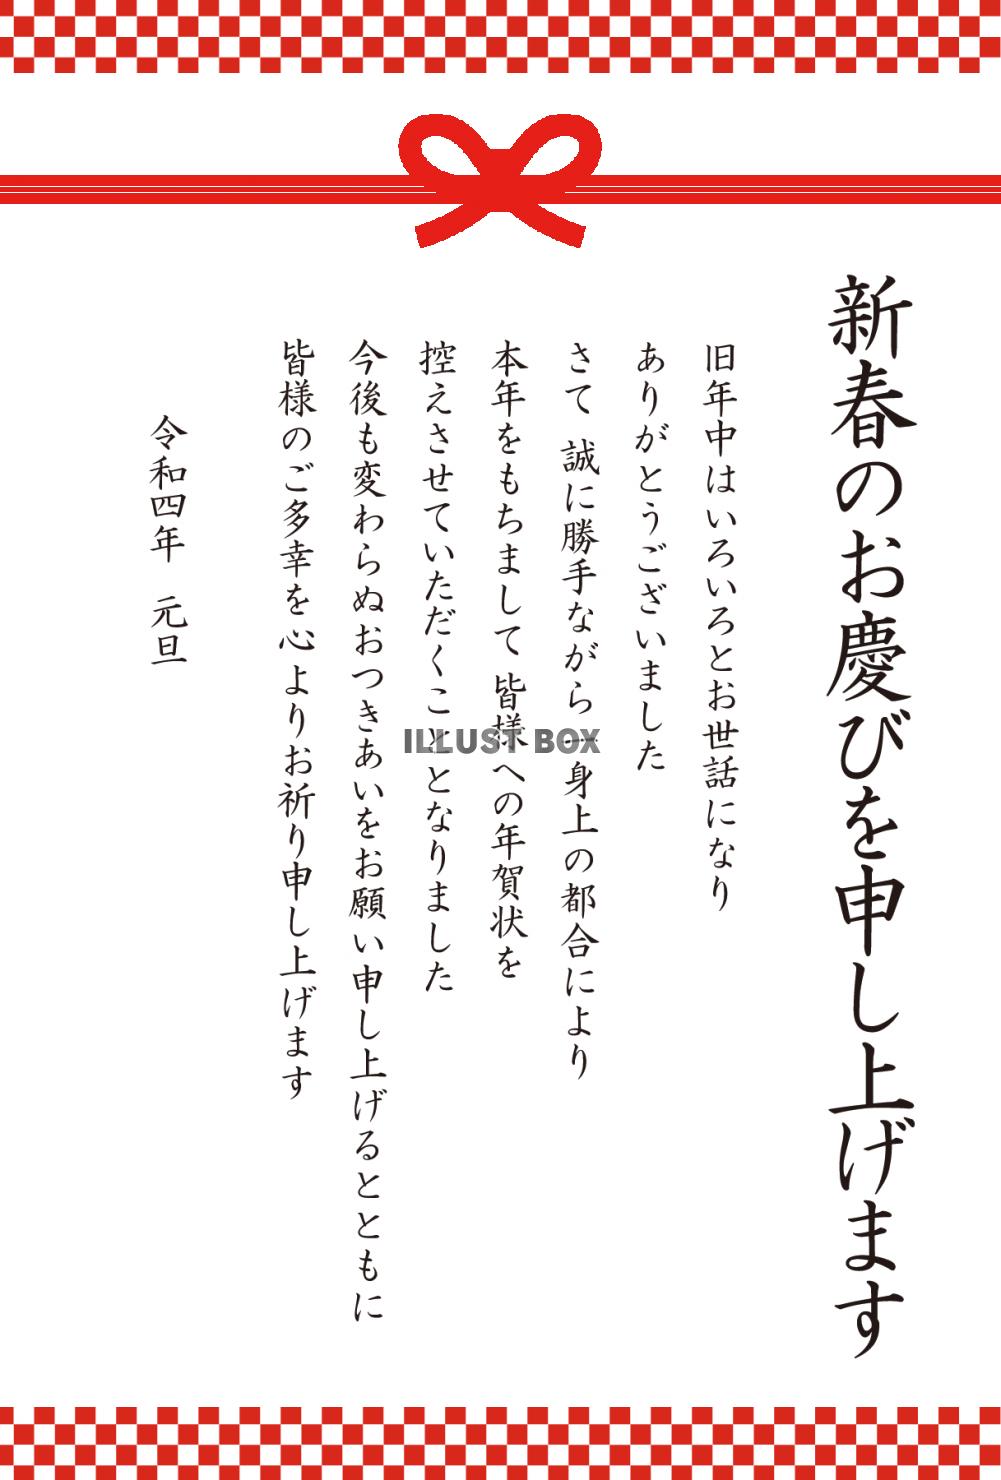 新春のお慶びを申し上げます
旧年中はいろいろとお世話になり
ありがとうございました
さて 誠に勝手ながら一身上の都合により
本年をもちまして 皆様への年賀状を
控えさせていただくこととなりました
今後も変わらぬおつきあいをお願い申し上げるとともに
皆様のご多幸を心よりお祈り申し上げます
令和四年 元旦
ILLUST BOX